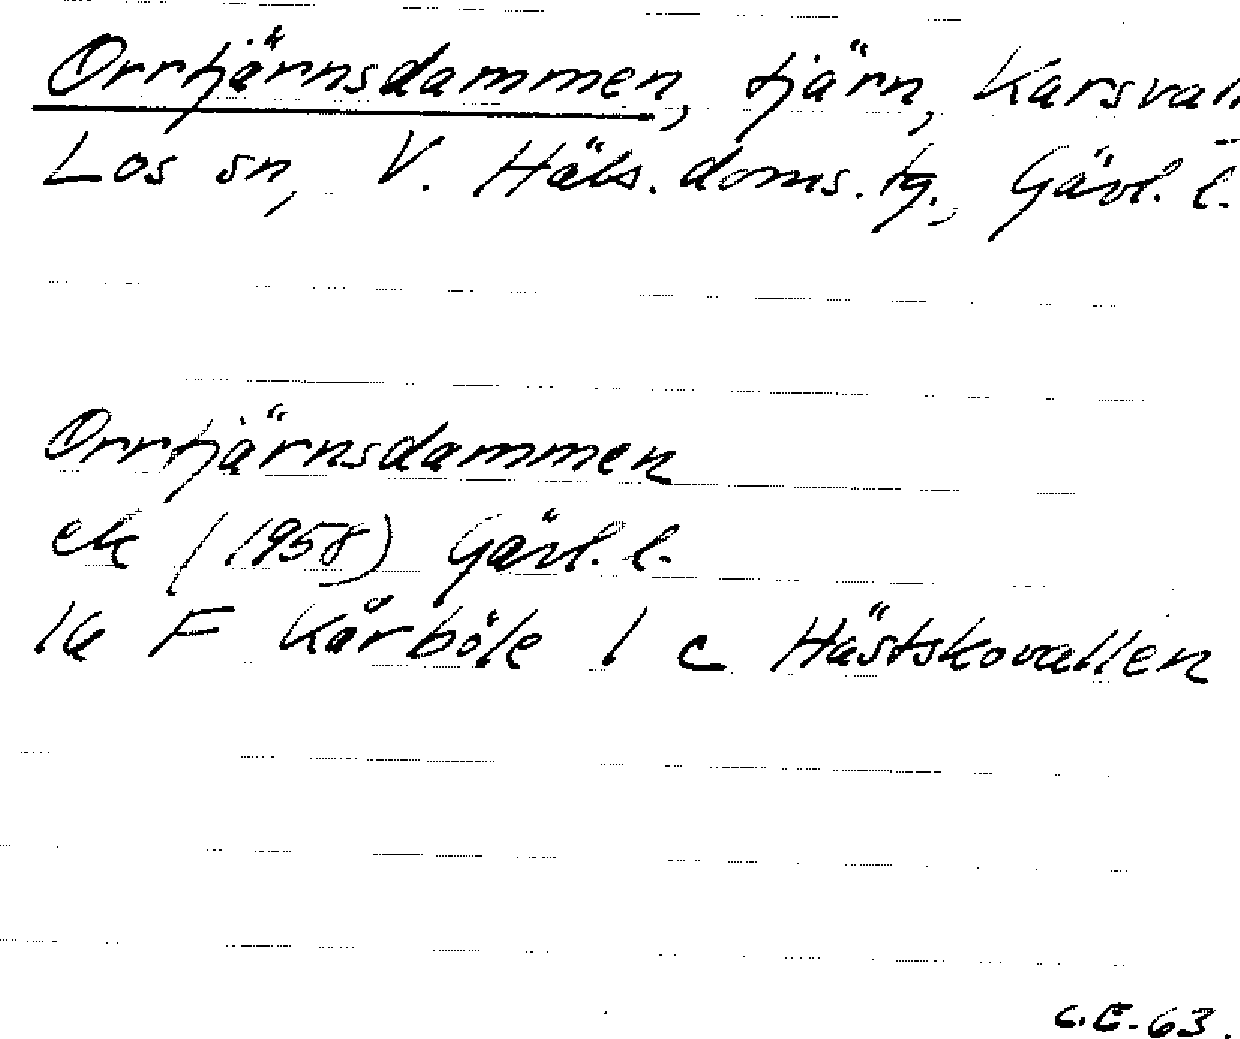 Orrtjärnsdammen, tjärn, Karsvall
Los sn, V. Häls. doms. tg., Gävl. l.
Orrtjärnsdammen
ek (1958) Gävl. l.
16 F Kårböle 1 c Hästskovallen
C.E-63.